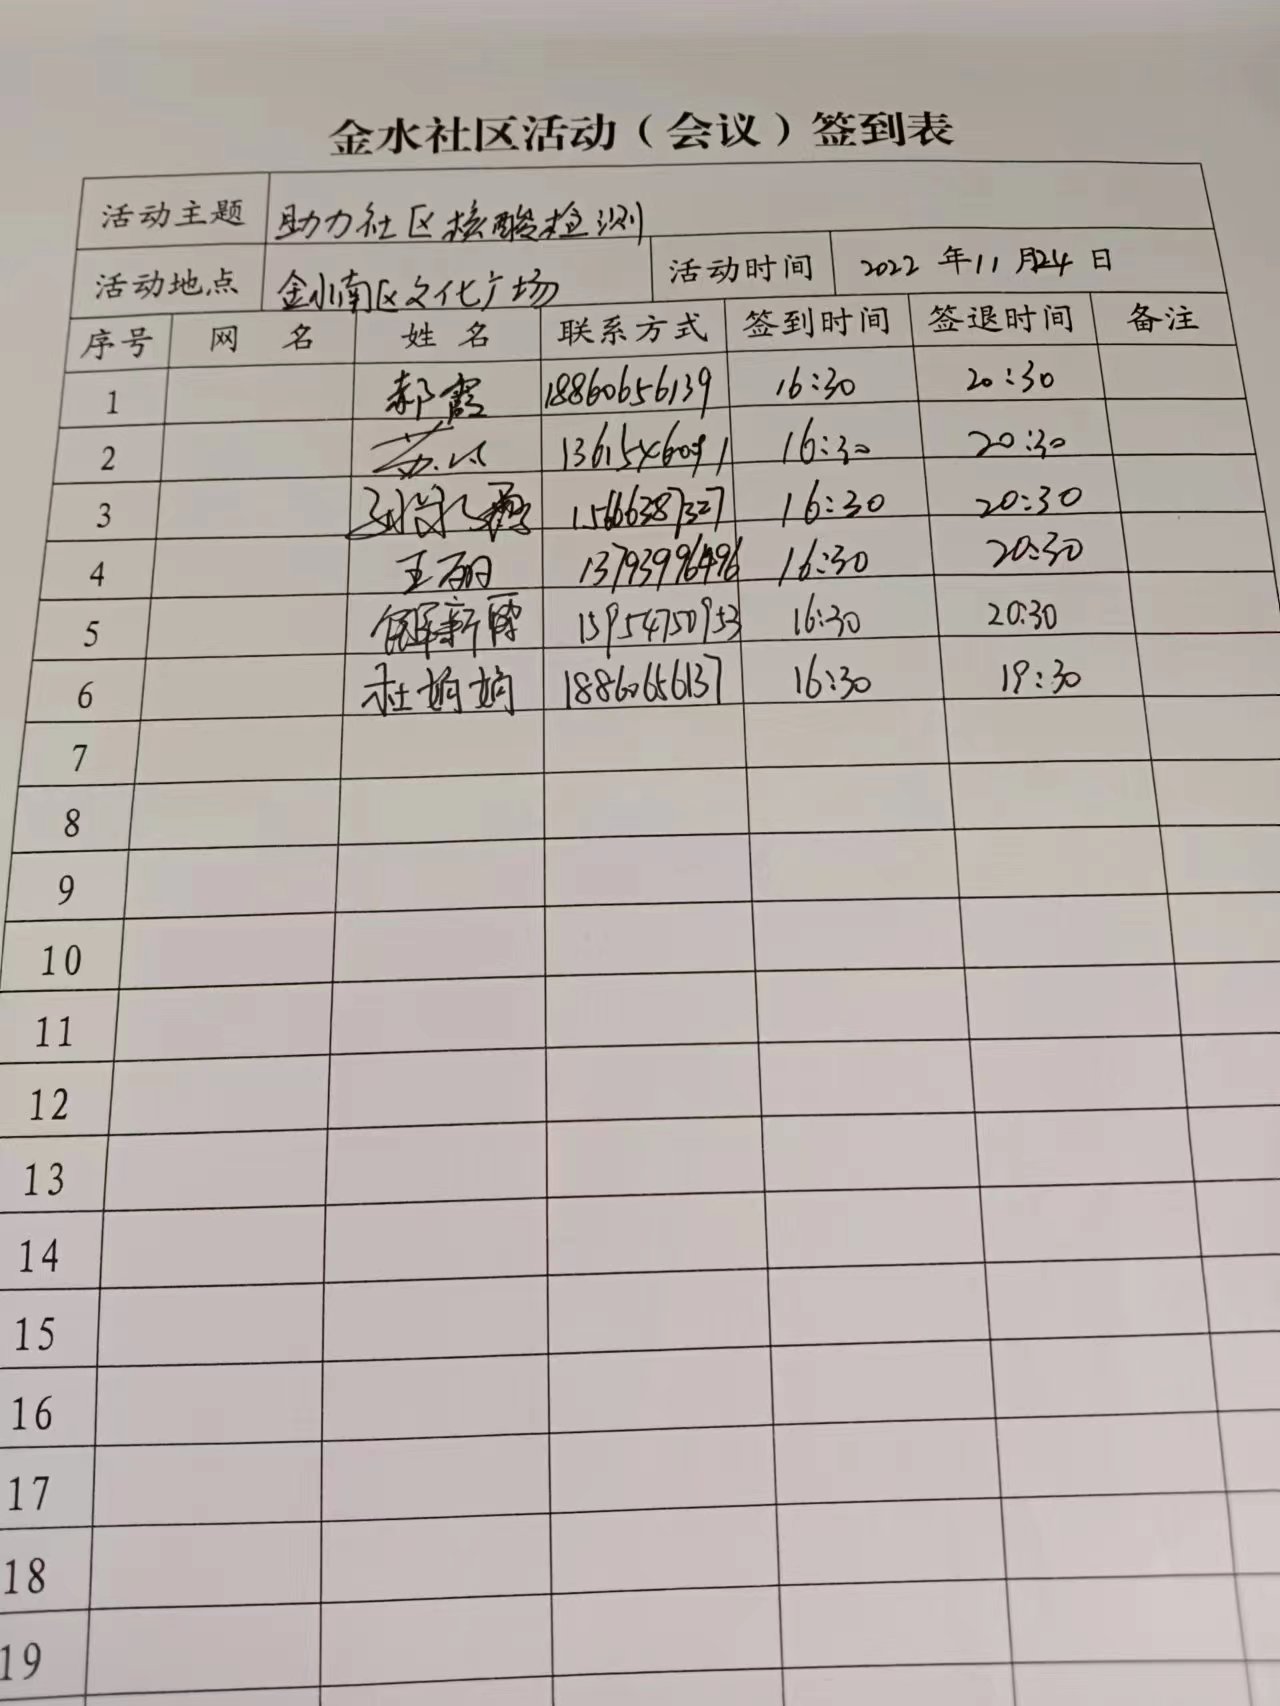 金水社区活动（会议）签到表
活动主题 助力社区核酸检测
活动地点 金水南区文化广场 活动时间 2022 年 11 月 24 日
序号 网 名 姓 名 联系方式 签到时间 签退时间 备注
1 郝霞 18860656139 16:30 20:30
2 16:30 20:30
3 15666387327 16:30 20:30
4 王丽 13793996496 16:30 20:30
5 15954750953 16:30 20:30
6 杜娟娟 18860656137 16:30 19:30
7
8
9
10
11
12
13
14
15
16
17
18
19